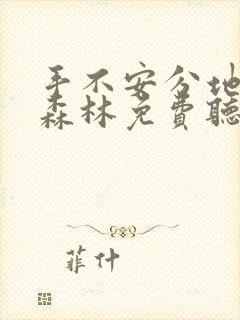 手不安分地
森林免費聽
菲什